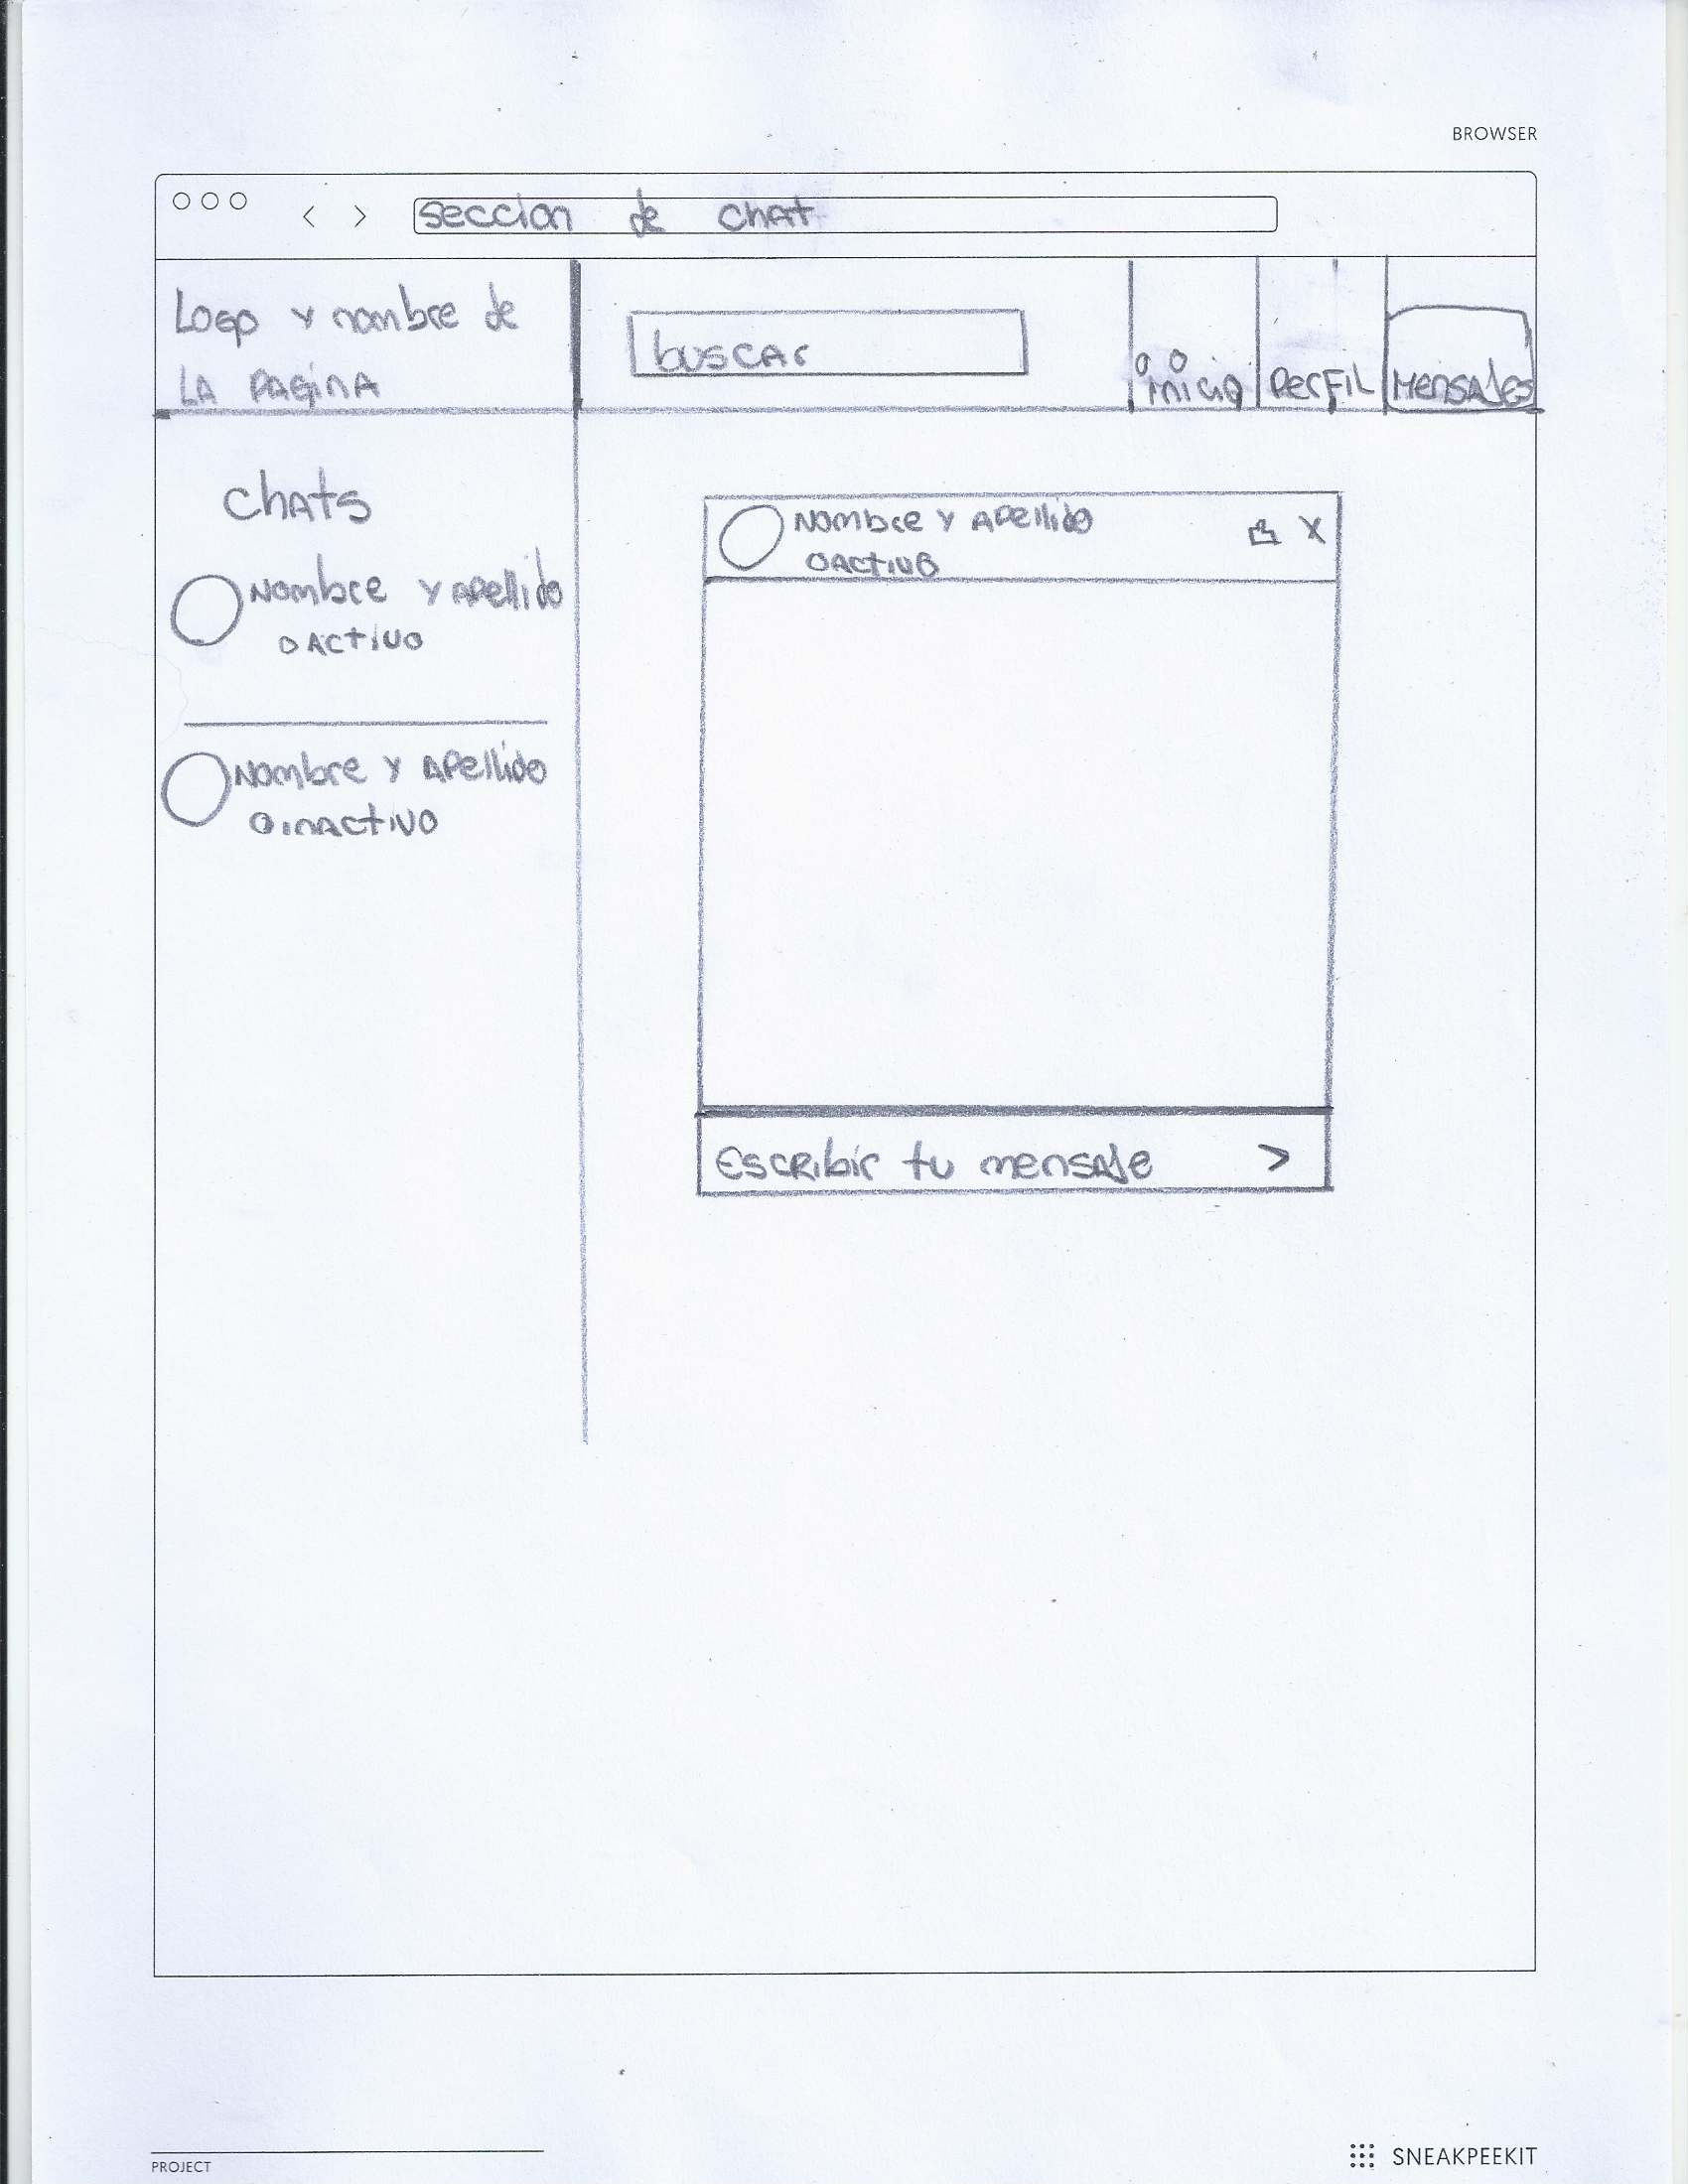 BROWSER
seccion de chat
Logo y nombre de
LA PAGINA
buscar
inicio
PERFIL
MENSAJES
Chats
Nombre Y APellido
ACTIVO
Nombre Y APellido
inACtIVO
Nombre Y APellido
ACTIVO
X
EsCRibir tu mensaje
>
PROJECT
SNEAKPEEKIT